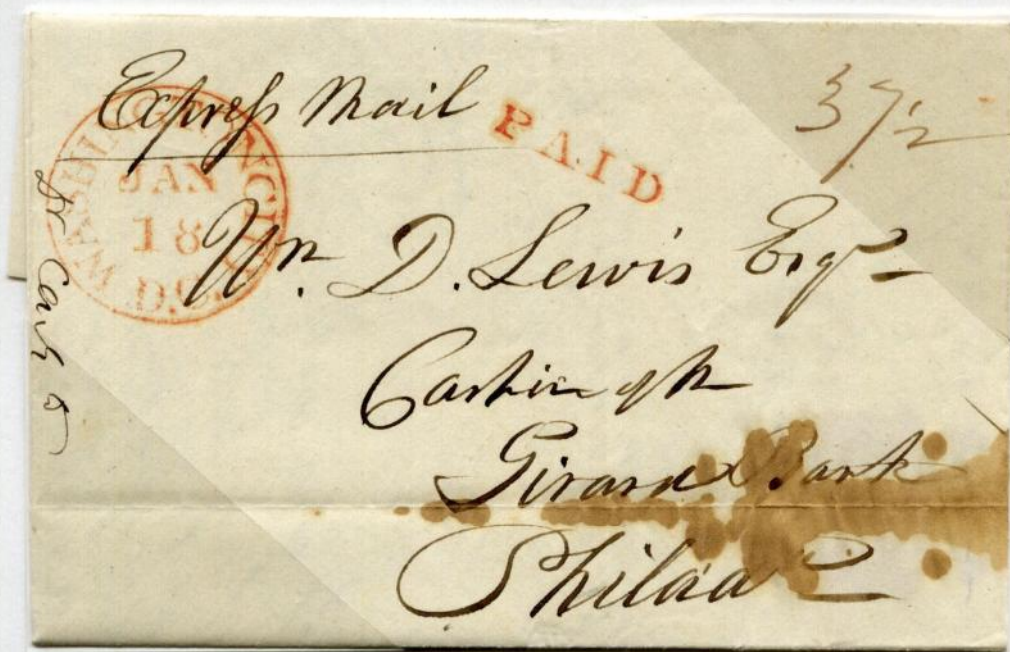 Express Mail
PAID
37½
WASHINGTON CITY
JAN
18
D.C.
Wm. D. Lewis Esqr
Cashier of the
Girard Bank
Philada